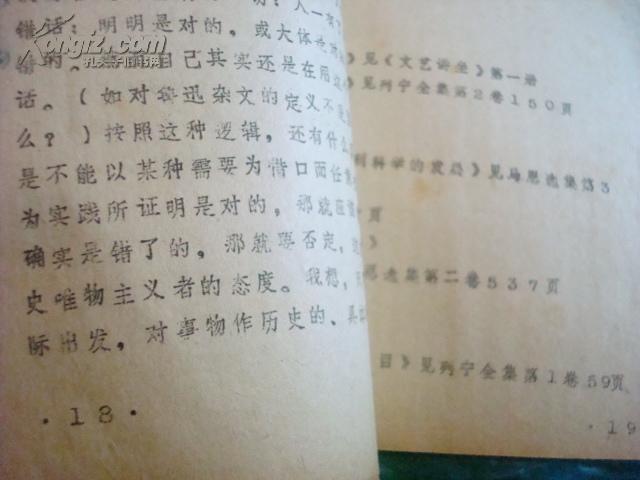 错话：明明是对的，或大体
的。
自己其实还是在用
话。（如对鲁迅杂文的定义不是
么？）按照这种逻辑，还有什么
是不能以某种需要为借口而任意
为实践所证明是对的，那就应
确实是错了的，那就要否定，
史唯物主义者的态度。我想，
际出发，对事物作历史的、具
·18·
》见《文艺讲座》第一册
》见列宁全集第2卷150页
科学的发展》见马恩选集第3
页
》
选集第二卷537页
目》见列宁全集第1卷59页
·19